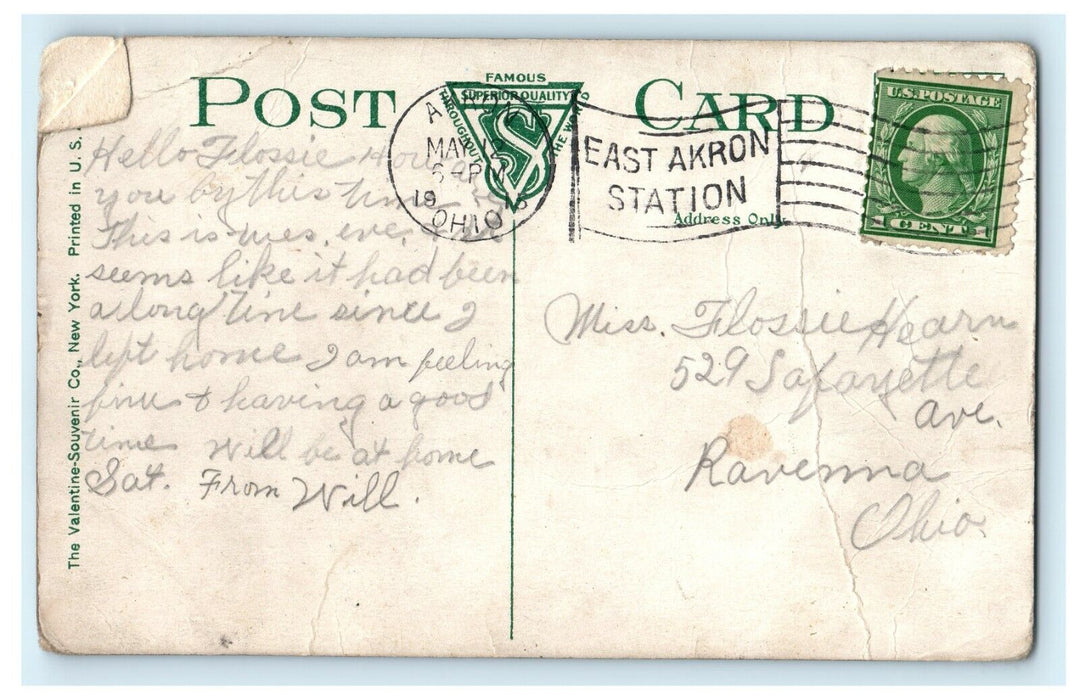 POST CARD
FAMOUS
SUPERIOR QUALITY
THROUGHOUT THE WORLD
VS
MAY 12
6 PM
OHIO
EAST AKRON
STATION
Address Only
U.S. POSTAGE
1 CENT 1
The Valentine-Souvenir Co., New York. Printed in U. S.
Hello Flossie How
you by this time
This is Wes. eve.
seems like it had been
a long time since I
left home I am feeling
fine & having a good
time Will be at home
Sat. From Will.
Miss. Flossie Hearn
529 Lafayette
ave.
Ravenna
Ohio